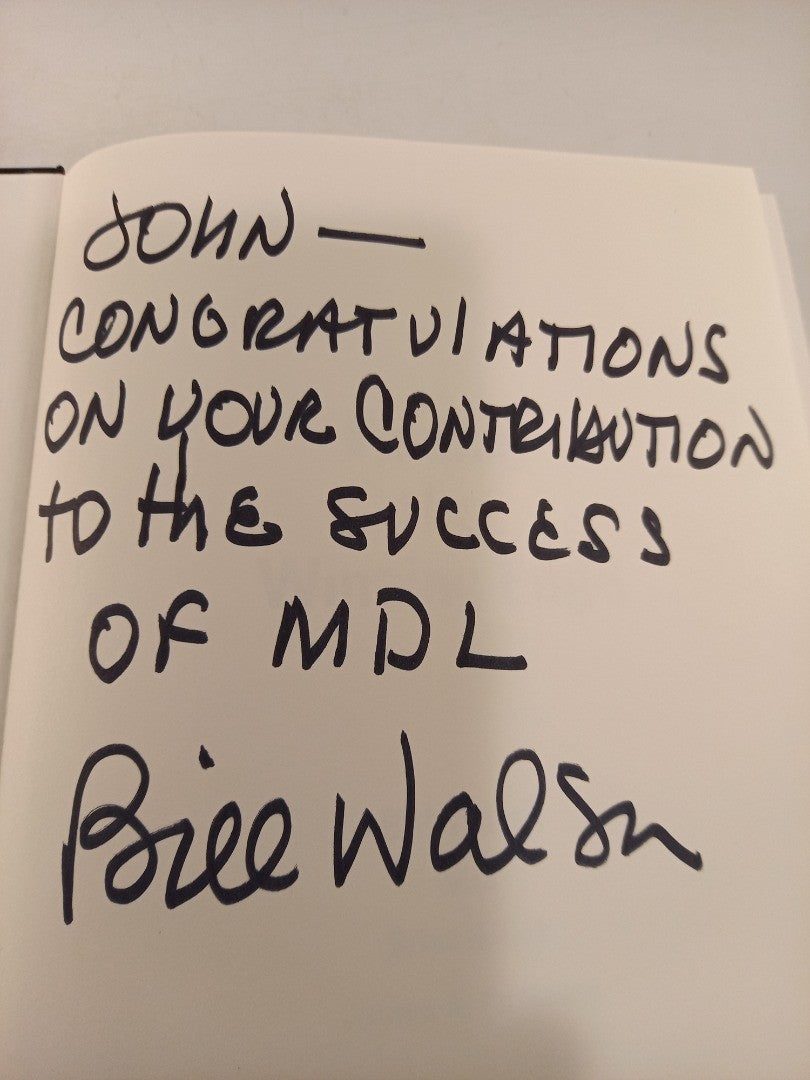 JOHN —
CONGRATULATIONS
ON YOUR CONTRIBUTION
TO THE SUCCESS
OF MDL
Bill Walsh